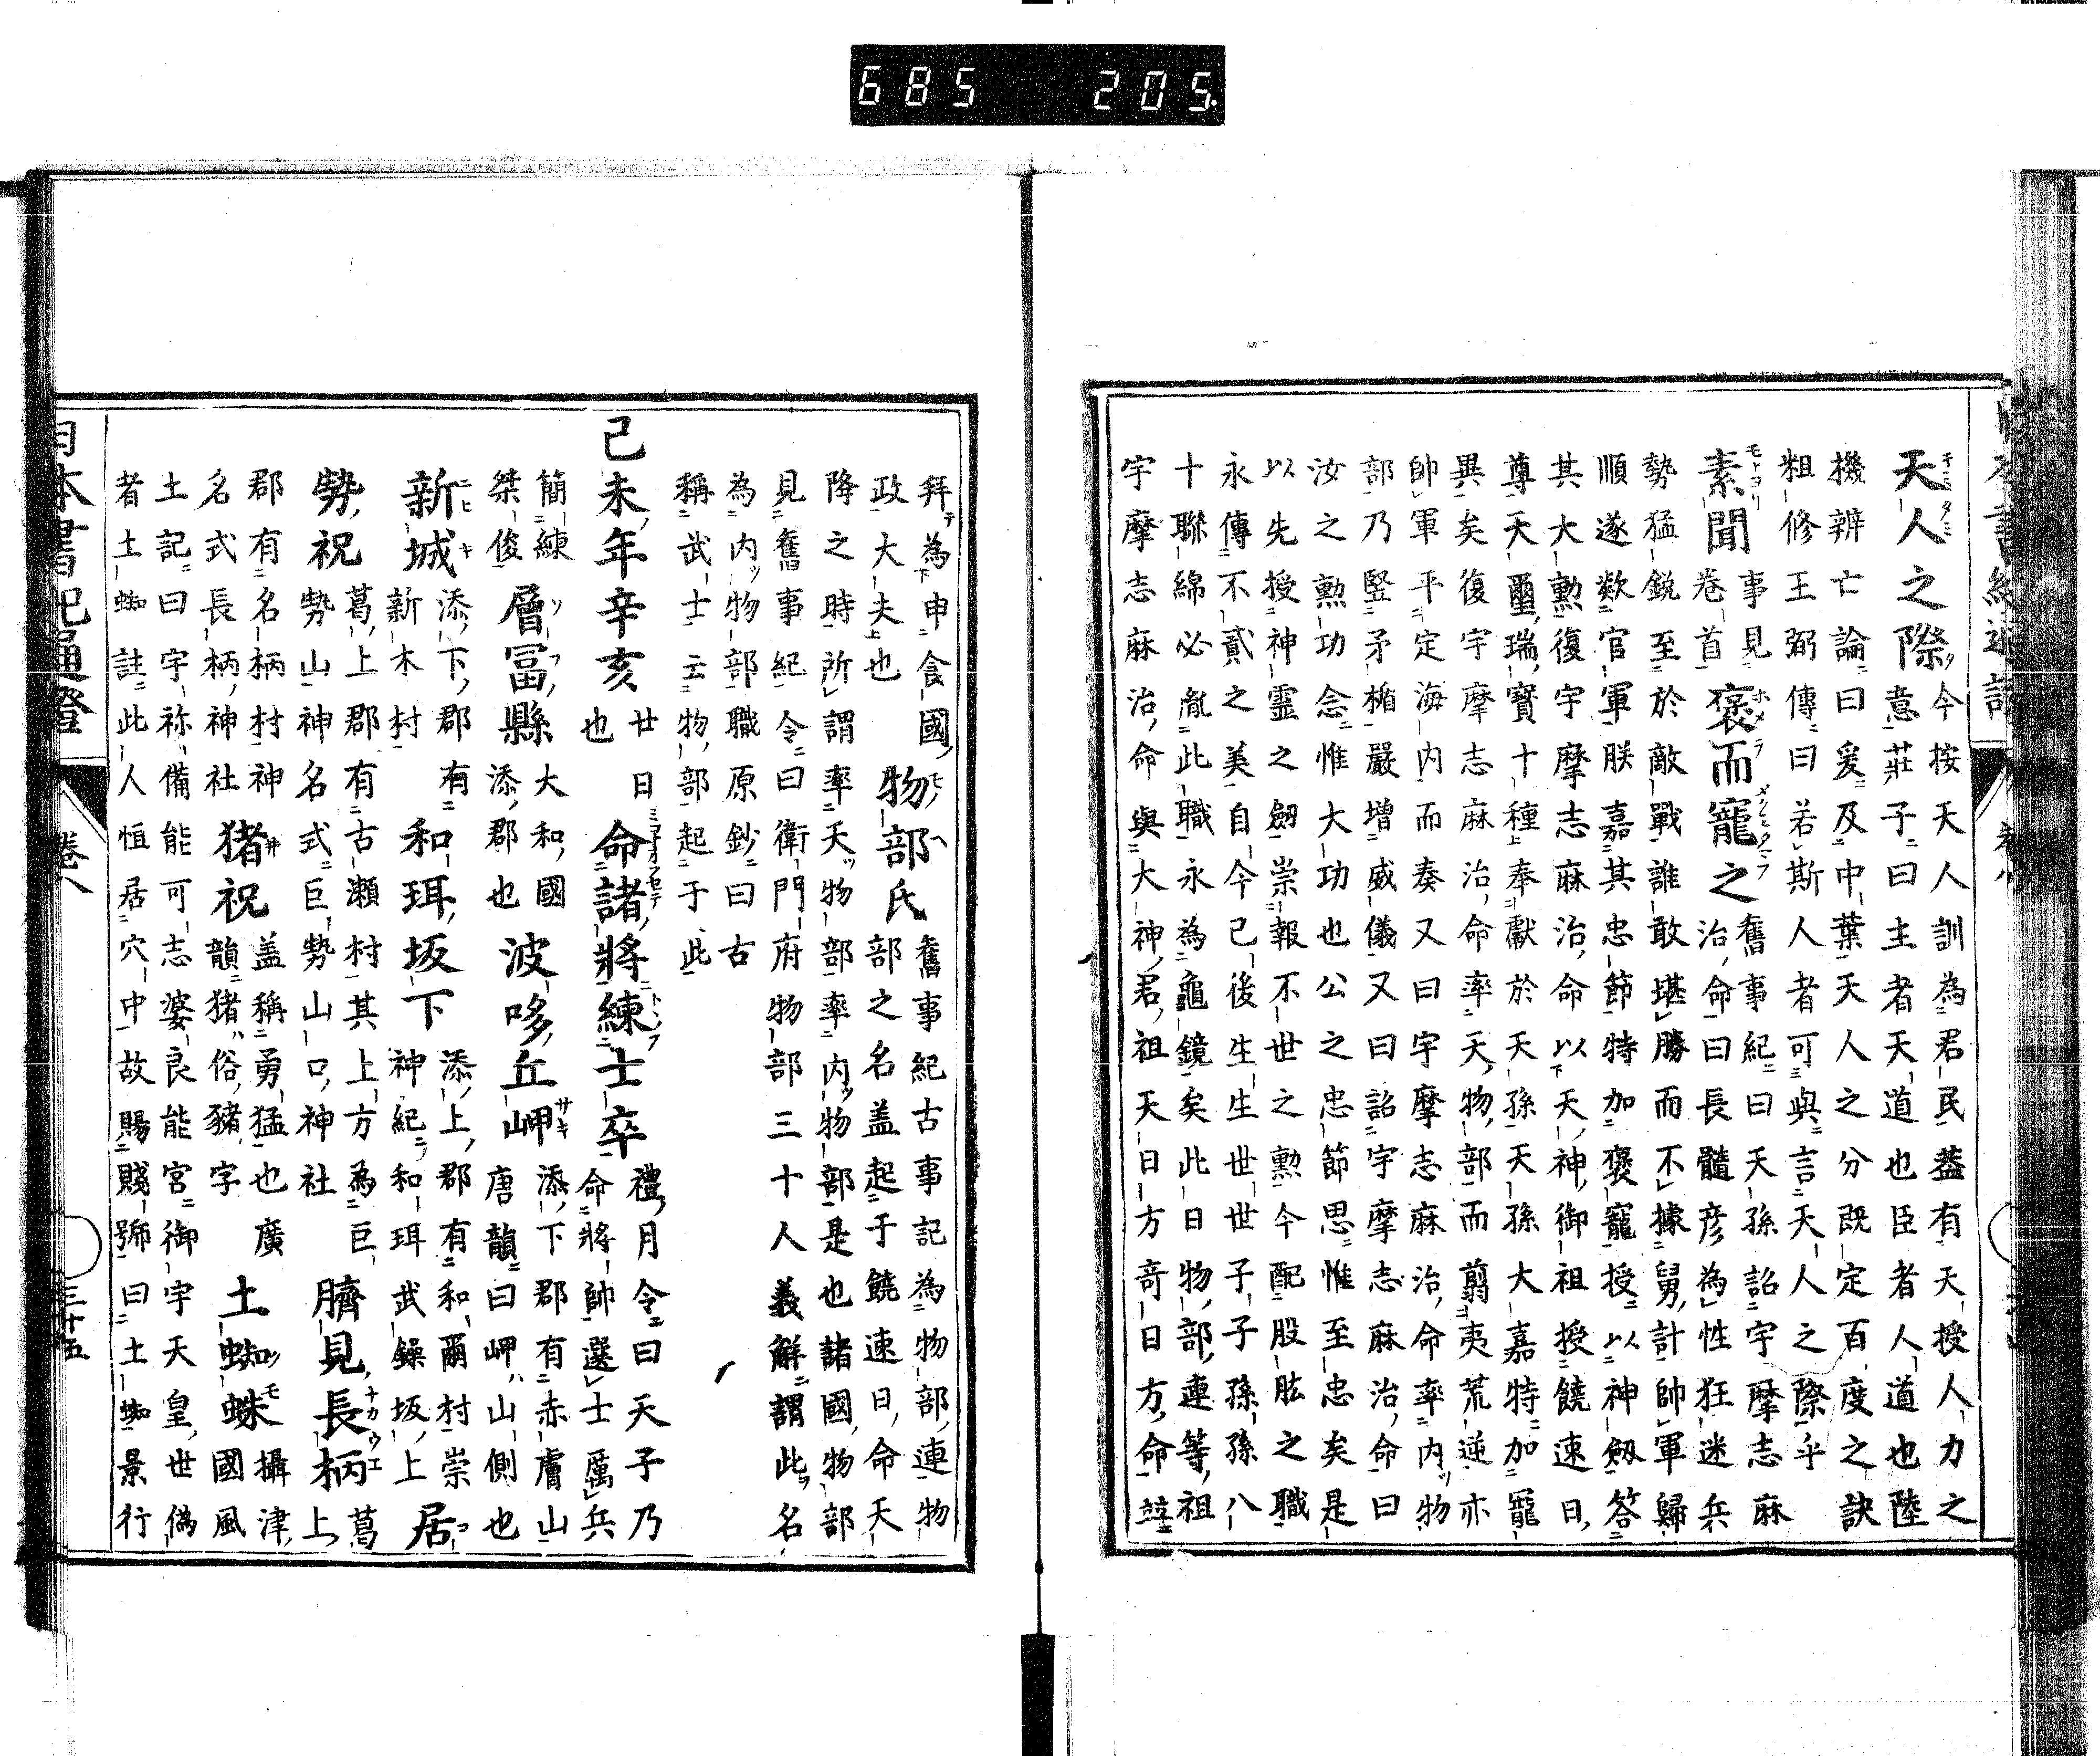 685 205
天人之際今按天人訓為君民蓋有天授人力之
意莊子曰主者天道也臣者人道也陸
機辨亡論曰爰及中葉天人之分既定百度之訣
粗修王弼傳曰若斯人者可與言天人之際乎
素聞事見卷首褒而寵之舊事紀曰天孫詔宇摩志麻
治命曰長髓彦為性狂迷兵
勢猛銳至於敵戰誰敢堪勝而不據舅計帥軍歸
順遂欵官軍朕嘉其忠節特加褒寵授以神劔答
其大勲復宇摩志麻治命以天神御祖授饒速日
尊天璽瑞寶十種奉獻於天孫天孫大嘉特加寵
異矣復宇摩志麻治命率天物部而翦夷荒逆亦
帥軍平定海内而奏又曰宇摩志麻治命率内物
部乃竪矛楯嚴增威儀又曰詔宇摩志麻治命曰
汝之勲功念惟大功也公之忠節思惟至忠矣是
以先授神靈之劔崇報不世之勲今配股肱之職
永傳不貳之美自今已後生生世世子子孫孫八
十聯綿必胤此職永為龜鏡矣此日物部連等祖
宇摩志麻治命與大神君祖天日方竒日方命竝
拜為申食國政大夫也物部氏舊事紀古事記為物部連物
部之名盖起于饒速日命天
降之時所謂率天物部率内物部是也諸國物部
見舊事紀令曰衛門府物部三十人義解謂此名
為内物部職原鈔曰古
稱武士云物部起于此
己未年辛亥廿日也命諸將練士卒禮月令曰天子乃
命將帥選士厲兵
簡練桀俊層冨縣大和國添郡也波哆丘岬添下郡有赤膚山
唐韻曰岬山側也
新城添下郡有新木村和珥坂下添上郡有和爾村崇
神紀和珥武鐰坂上居
勢祝葛上郡有古瀬村其上方為巨
勢山神名式巨勢山口神社臍見長柄葛上
郡有名柄村神
名式長柄神社猪祝盖稱勇猛也廣
韻猪俗豬字土蜘蛛攝津國風
土記曰宇祢備能可志婆良能宮御宇天皇世偽
者土蜘註此人恒居穴中故賜賤號曰土蜘景行
日本書紀通證 卷八 三十五